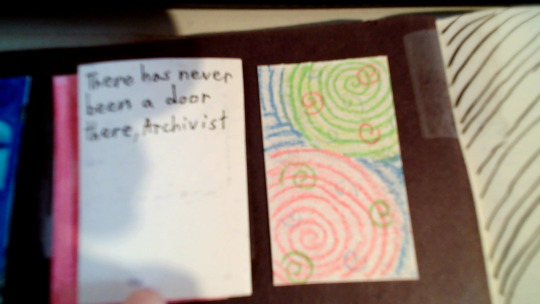 There has never
been a door
there, Archivist